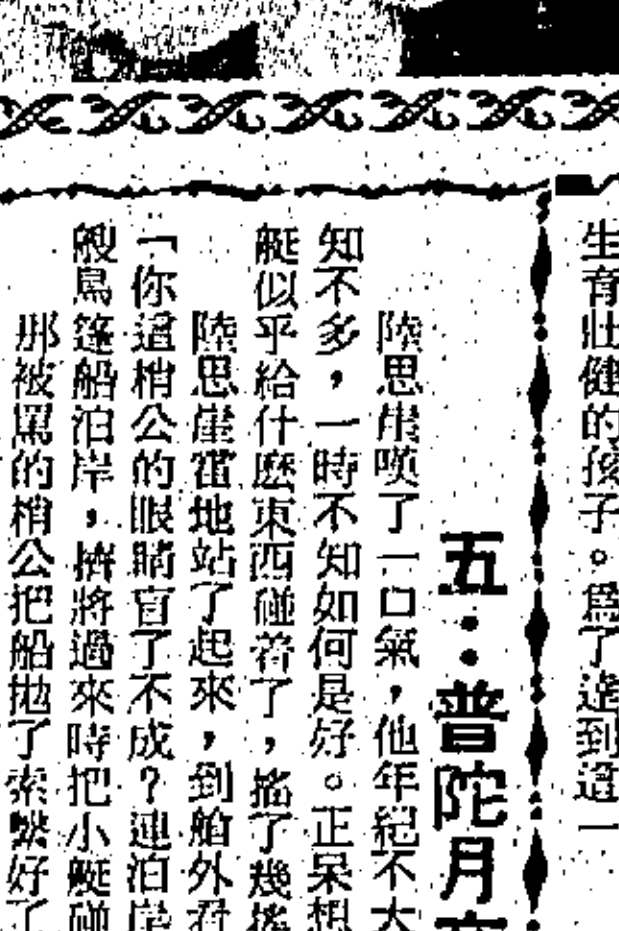 生育壯健的孩子。爲了達到這一
五：普陀月
陸思崖嘆了一口氣，他年紀不大
知不多，一時不知如何是好。正呆想
艇似乎給什麽東西碰着了，搖了幾搖
陸思崖霍地站了起來，到艙外看
「你這梢公的眼睛盲了不成？連泊岸
艘烏篷船泊岸，擠將過來時把小艇碰
那被罵的梢公把船拋了索繫好了